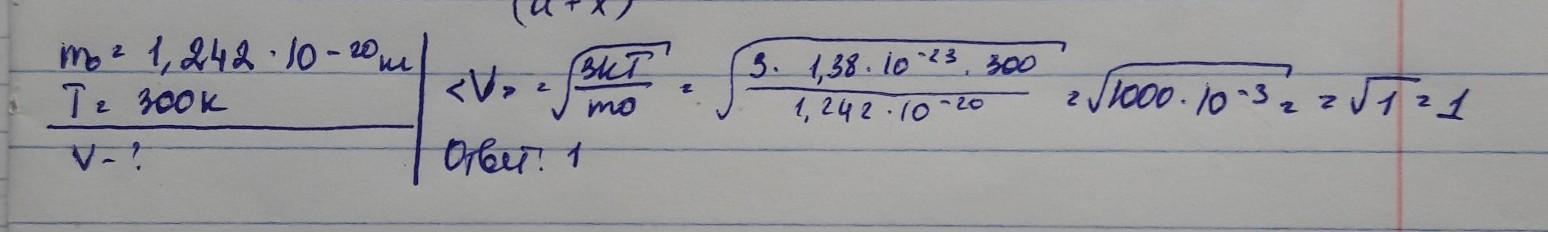 (a + x)
m₀ = 1,242 · 10⁻²⁰ кг
T = 300к
V - ?
<V> = √(3кT/m0) = √(3 · 1,38 · 10⁻²³ · 300 / 1,242 · 10⁻²⁰) = √(1000 · 10⁻³) = = √1 = 1
Ответ: 1